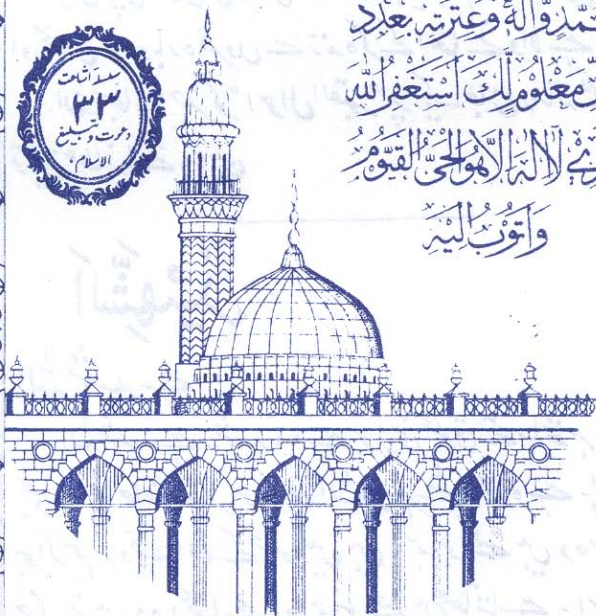 سلسلہ اشاعت
۳۳
دعوت و تبلیغ
الاسلام
وَّاٰلِهٖ وَعِتْرَتِهٖ بِعَدَدِ
مَعْلُوْمٍ لَّكَ اَسْتَغْفِرُ اللّٰهَ
لَآ اِلٰهَ اِلَّا هُوَ الْحَىُّ الْقَيُّوْمُ
وَاَتُوْبُ اِلَيْهِ